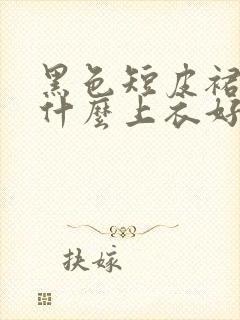 黑色短皮裙
什麼上衣好
扶嫁